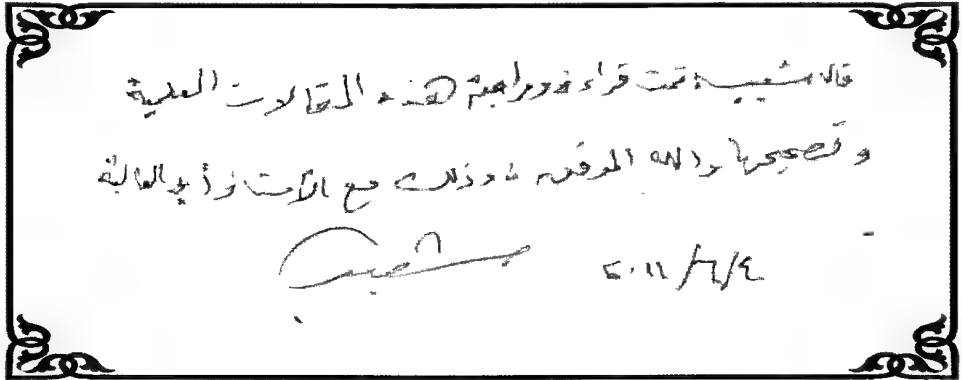 قال شعيب: تمت قراءة ومراجعة هذه المقالات العلمية
وتصحيحها والله الموفق، وذلك مع الأستاذ أبو العالية
٢٠١١/٦/٤
شعيب